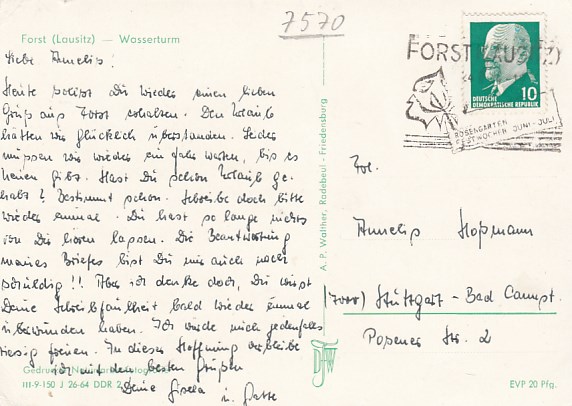 7570
Forst (Lausitz) — Wasserturm
Liebe Annelis!
Heute sollst Du wieder einen lieben
Gruß aus Forst erhalten. Den Urlaub
hätten wir glücklich überstanden. Leider
müssen wir wieder ein Jahr warten, bis es
neuen gibt. Hast Du schon Urlaub ge-
habt? Bestimmt schon. Schreibe doch bitte
wieder einmal. Du hast so lange nichts
von Dir hören lassen. Die Beantwortung
meines Briefes bist Du mir auch noch
schuldig!! Aber ich denke doch, Du wirst
Deine Schreibfaulheit bald wieder einmal
überwunden haben. Ich würde mich jedenfalls
riesig freuen. In dieser Hoffnung verbleibe
ich mit den besten Grüßen
Deine Gisela u.
III-9-150 J 26-64 DDR 2
A. P. Walther, Radebeul - Friedensburg
FORST (LAUSITZ)
ROSENGARTEN
FESTWOCHEN JUNI-JULI
DEUTSCHE
DEMOKRATISCHE REPUBLIK
10
Annelis Hoffmann
(7000) Stuttgart - Bad Cannst.
Str. 2
EVP 20 Pfg.